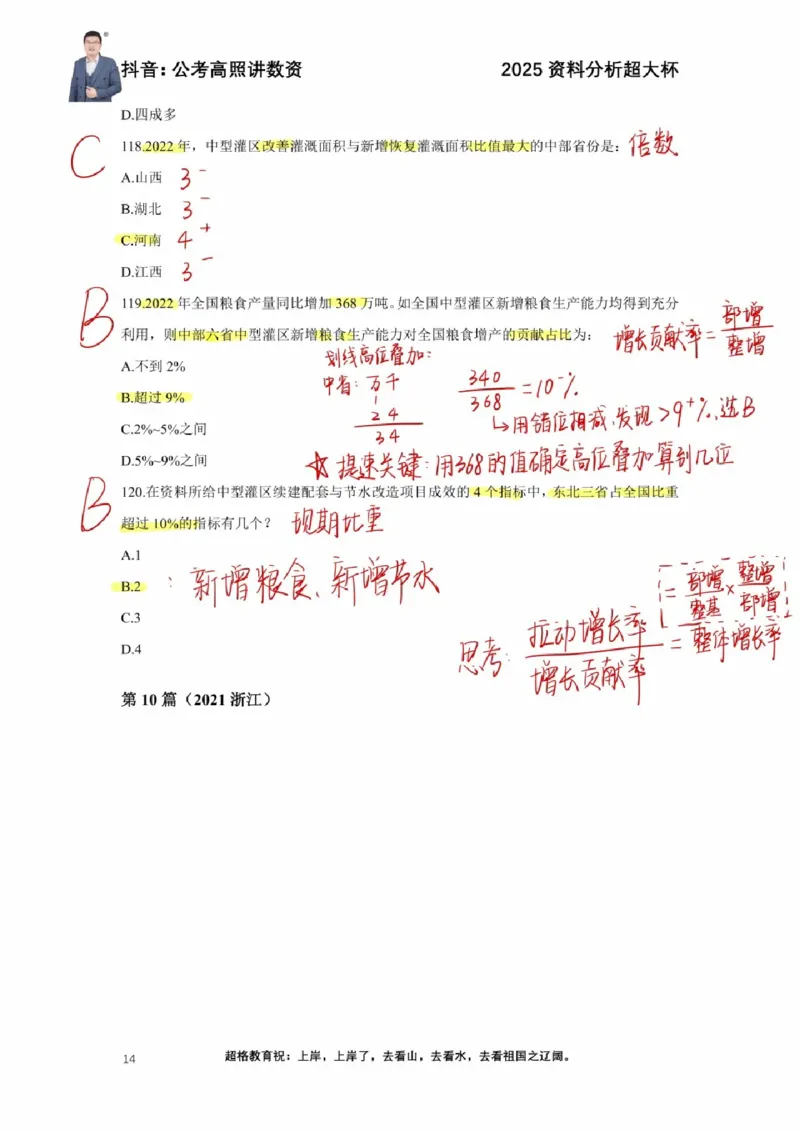 抖音：公考高照讲数资 2025 资料分析超大杯
D.四成多
118.2022 年，中型灌区改善灌溉面积与新增恢复灌溉面积比值最大的中部省份是： 倍数
C
A.山西 3⁻
B.湖北 3⁻
C.河南 4⁺
D.江西 3⁻
B
119.2022 年全国粮食产量同比增加 368 万吨。如全国中型灌区新增粮食生产能力均得到充分
利用，则中部六省中型灌区新增粮食生产能力对全国粮食增产的贡献占比为： 增长贡献率=部增/整增
A.不到 2%
划线高位叠加：
中省：万千
1
24
34
340/368=10⁻%
↳用错位相减、发现>9⁺%、选B
B.超过 9%
C.2%~5%之间
D.5%~9%之间
☆提速关键：用368的值确定高位叠加算到几位
B
120.在资料所给中型灌区续建配套与节水改造项目成效的 4 个指标中，东北三省占全国比重
超过 10%的指标有几个？ 现期比重
A.1
B.2 ：新增粮食、新增节水
C.3
D.4
思考：拉动增长率/增长贡献率=整体增长率
=部增/整基×整增/部增
第 10 篇（2021 浙江）
14 超格教育祝：上岸，上岸了，去看山，去看水，去看祖国之辽阔。